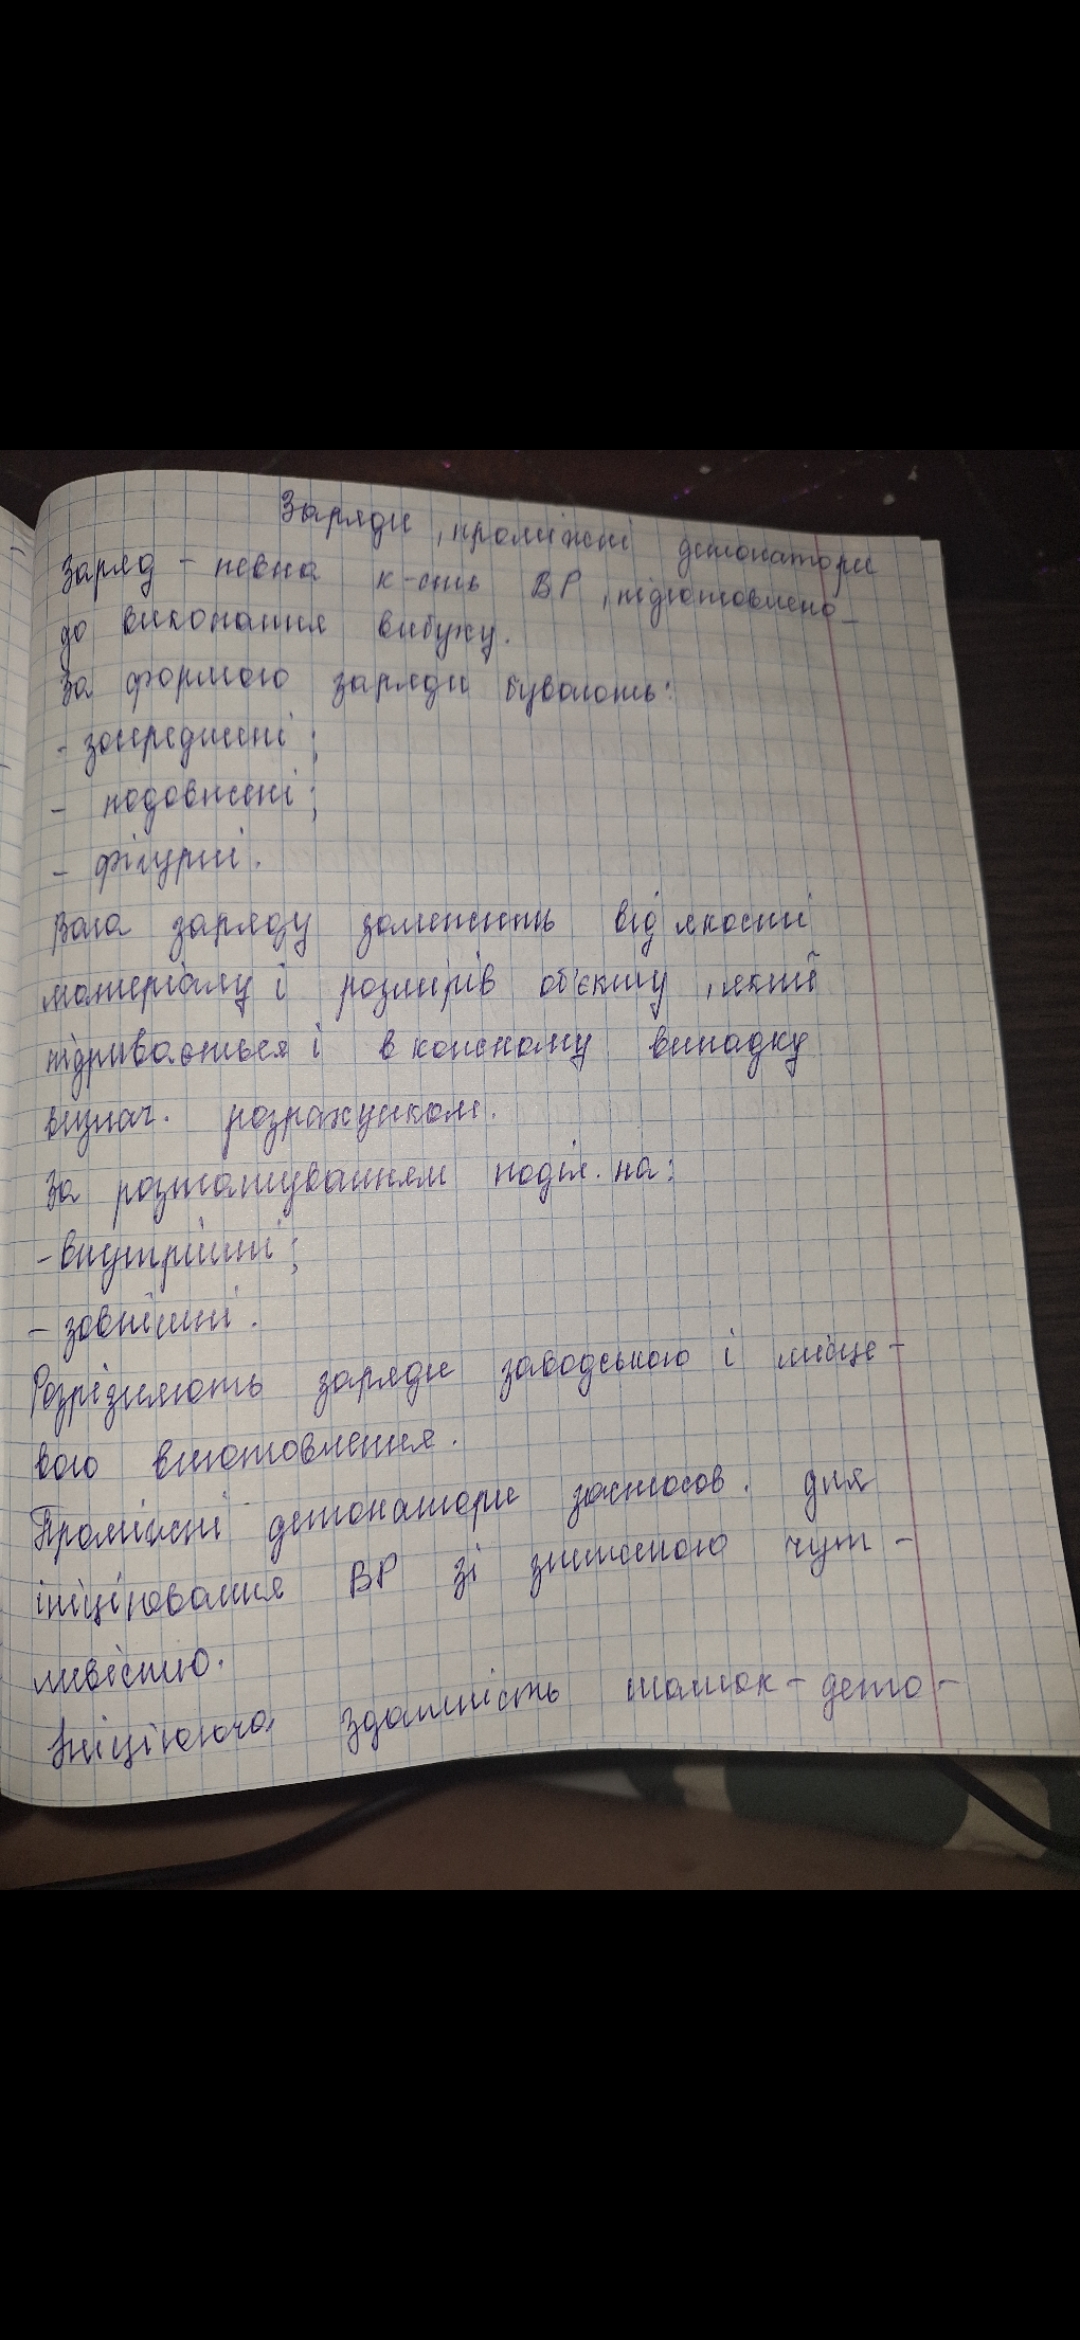 Заряди, проміжні детонатори
Заряд - певна к-сть ВР, підготовлено
до виконання вибуху.
За формою заряди бувають:
- зосереджені;
- подовжені;
- фігурні.
Вага заряду залежить від якості
матеріалу і розмірів об'єкту, який
підривається і в кожному випадку
визнач. розрахунком.
За розташуванням поділ. на:
- внутрішні;
- зовнішні.
Розрізняють заряди заводського і місце-
вого виготовлення.
Проміжні детонатори застосов. для
ініціювання ВР зі зниженою чут-
ливістю.
Ініціююча здатність шашок-дето-